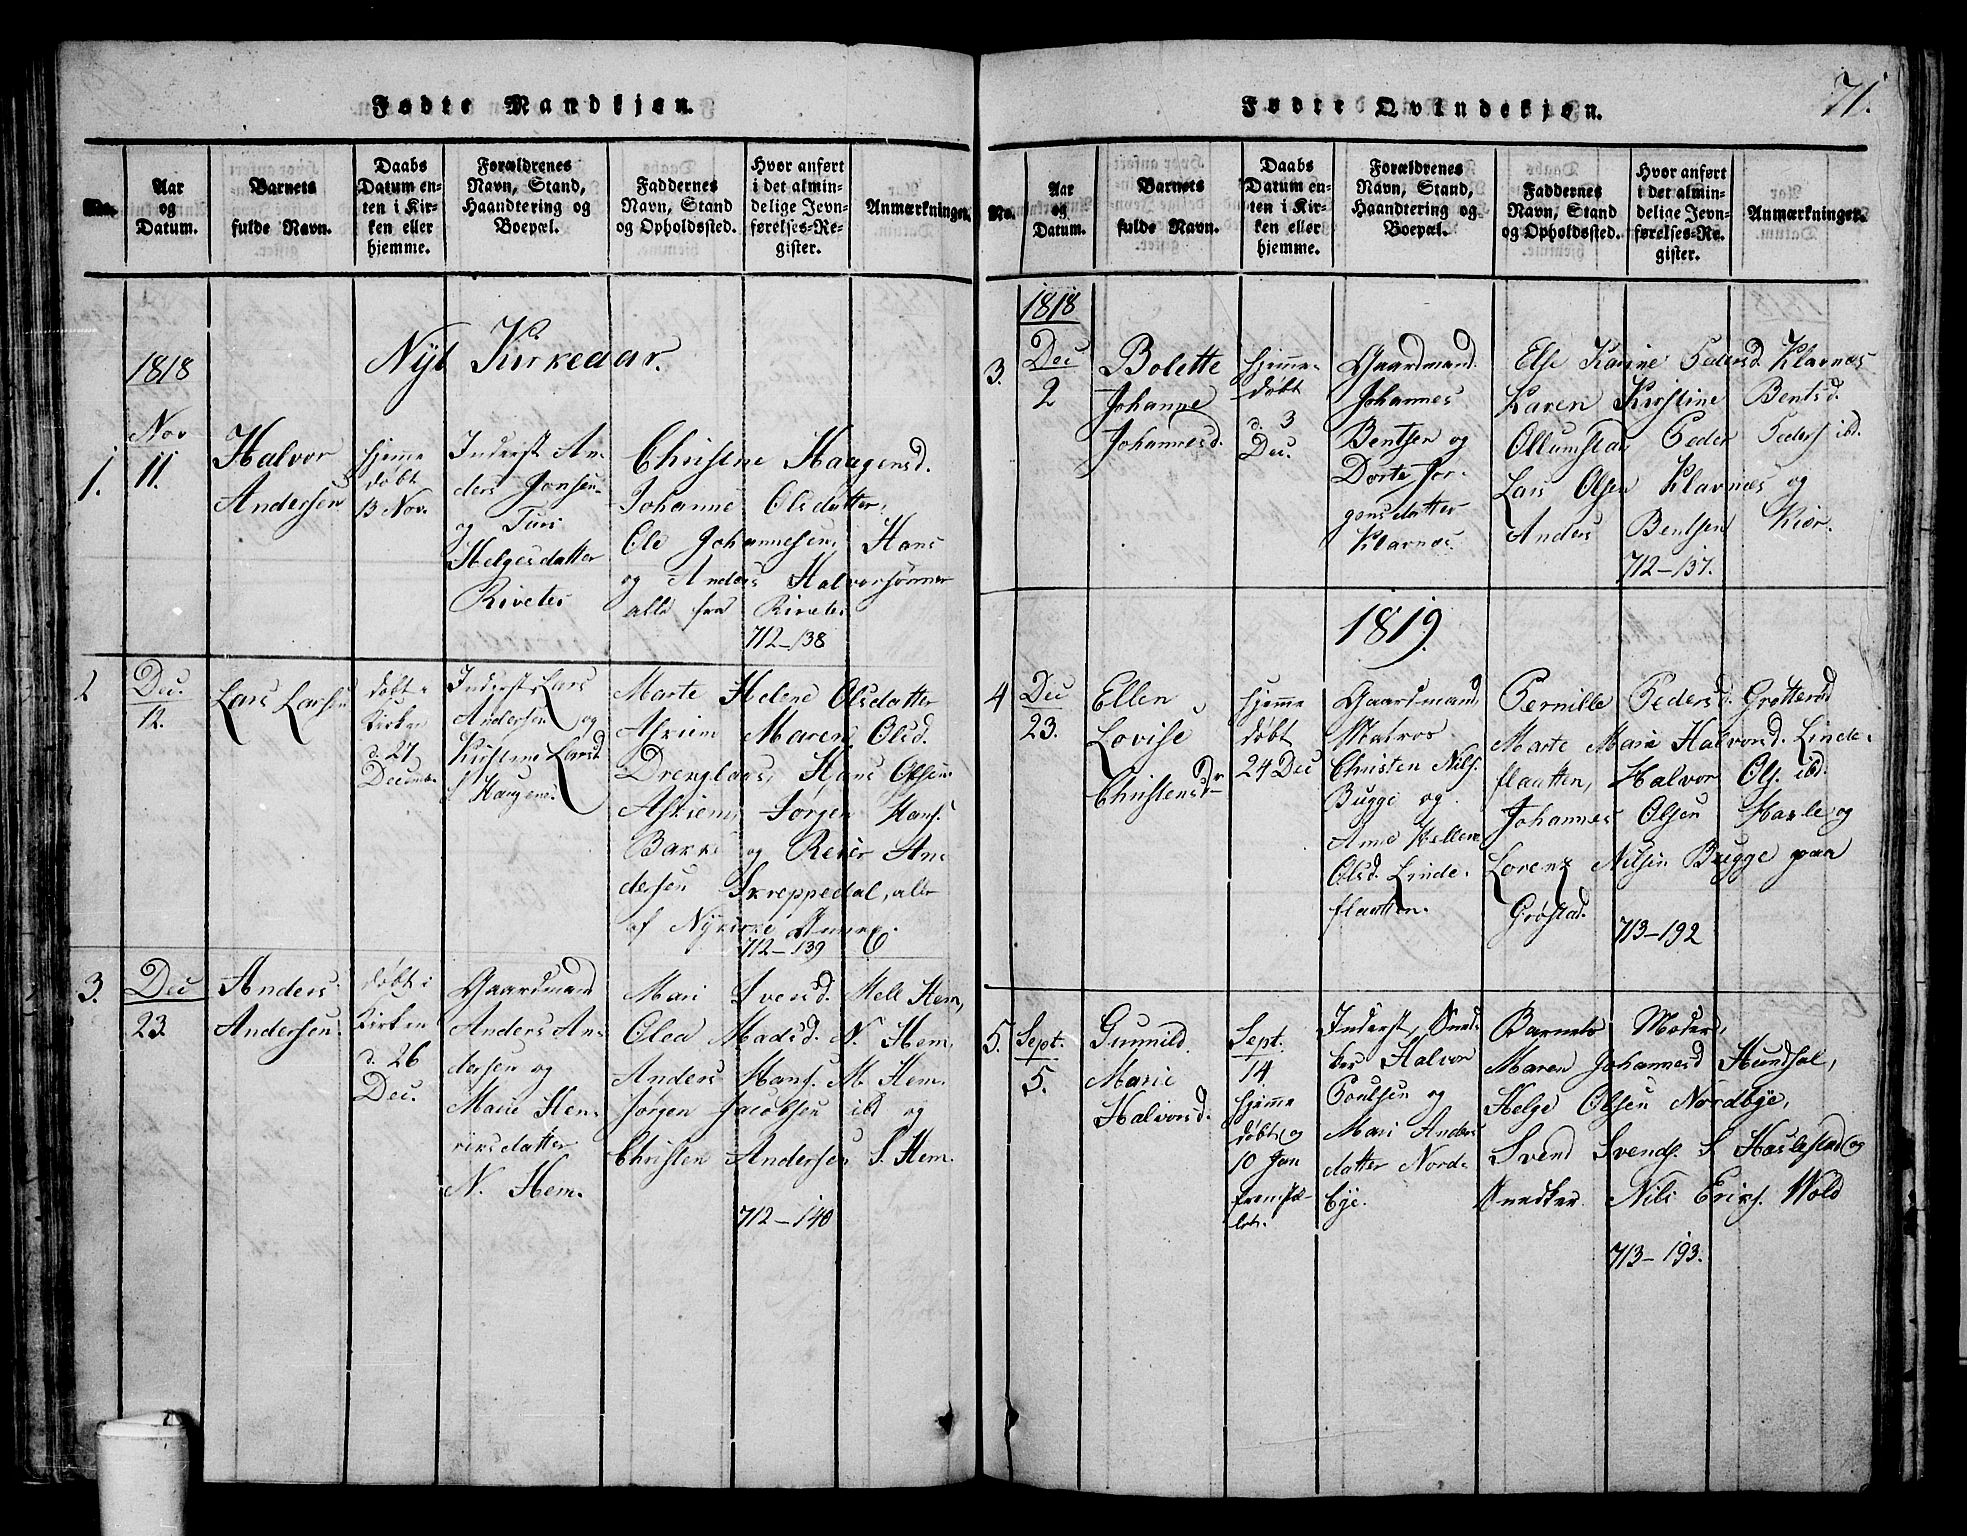 Fødte Mandkjøn.
No.
Aar
og
Datum.
Barnets
fulde Navn.
Daabs
Datum en-
ten i Kir-
ken eller
hjemme.
Forældrenes
Navn, Stand,
Haandtering og
Boepæl.
Faddernes
Navn, Stand
og Opholdssted.
Hvor anført
i det almin-
delige Jevn-
førelses-Re-
gister.
Anmærkninger.
Nyt Kirkeaar.
1818
1.
Nov
11.
Halvor
Andersen
hjemme
døbt
13 Nov.
Inderst An-
ders Jonsen
og Turi
Helgesdatter
Rivetes
Christene Haagensd.
Johanne Olsdatter,
Ole Johannesen, Hans
og Anders Halvorsønner
alle fra Rivetes
712-138
2
Dec.
12.
Lars Larsen
døbt i
Kirken
d. 27
Decemb.
Inderst Lars
Andersen og
Kirstine Larsd
S Haugene
Marte Helene Olsdatter
Askiem Maren Olsd.
Drenglaas, Hans Olsen
Askiem, Jørgen Hans.
Bakke og Reier An-
dersen Skreppedal, alle
af Nykirke Annex.
712-139
3.
Dec
23.
Anders
Andersen
døbt i
Kirken
d. 26
Dec.
Gaardmand
Anders An-
dersen og
Marie Hen-
riksdatter
N. Hem.
Mari Svensd. Mell Hem,
Olea Madsd. N. Hem,
Anders Hans. M. Hem.
Jørgen Jacobsen ibd og
Christen Andersen S. Hem.
712-140
71.
Fødte Qvindekjøn.
No.
Aar
og
Datum.
Barnets
fulde Navn.
Daabs
Datum en-
ten i Kir-
ken eller
hjemme.
Forældrenes
Navn, Stand,
Haandtering og
Boepæl.
Faddernes
Navn, Stand
og Opholdssted.
Hvor anført
i det almin-
delige Jevn-
førelses-Re-
gister.
Anmærkninger.
1818
3.
Dec
2
Bolette
Johanne
Johannesd.
hjemme-
døbt
d. 3
Dec.
Gaardmand
Johannes
Bentsen og
Dorte Jør-
gensdatter
Klavnæs.
Else Karine Pedersd. Klavnæs
Karen Kirstine Bentsd.
Ollumstad Peder Peders. ibd.
Lars Olsen Klavnæs og
Anders Bentsen Kiær.
712-137.
1819.
4
Dec
23.
Ellen
Lovise
Christensdr
hjemme
døbt
24 Dec
Gaardmand
Matros
Christen Nils.
Bugge og
Anne Hellene
Olsd. Linde-
flaatten.
Pernille Pedersd. Grøtterud
Marte Marie Halvorsd. Linde-
flaatten, Halvor Ols. ibd.
Johannes Olsen Hasle og
Lorenz Nilsen Bugge paa
Grøstad.
713-192
5.
Sept.
5.
Gunnild
Marie
Halvorsd.
Sept.
14.
hjemme
døbt og
10 Jan
fremstæ-
let.
Inderst, Sned-
ker Halvor
Poulsen og
Mari Anders
datter Nord-
bye.
Barnets Moder,
Maren Johannesd Hundsal,
Helge Olsen Nordbye,
Svend Svends. S Haslestad og
Snedker Nils Eriks. Wold
713-193.